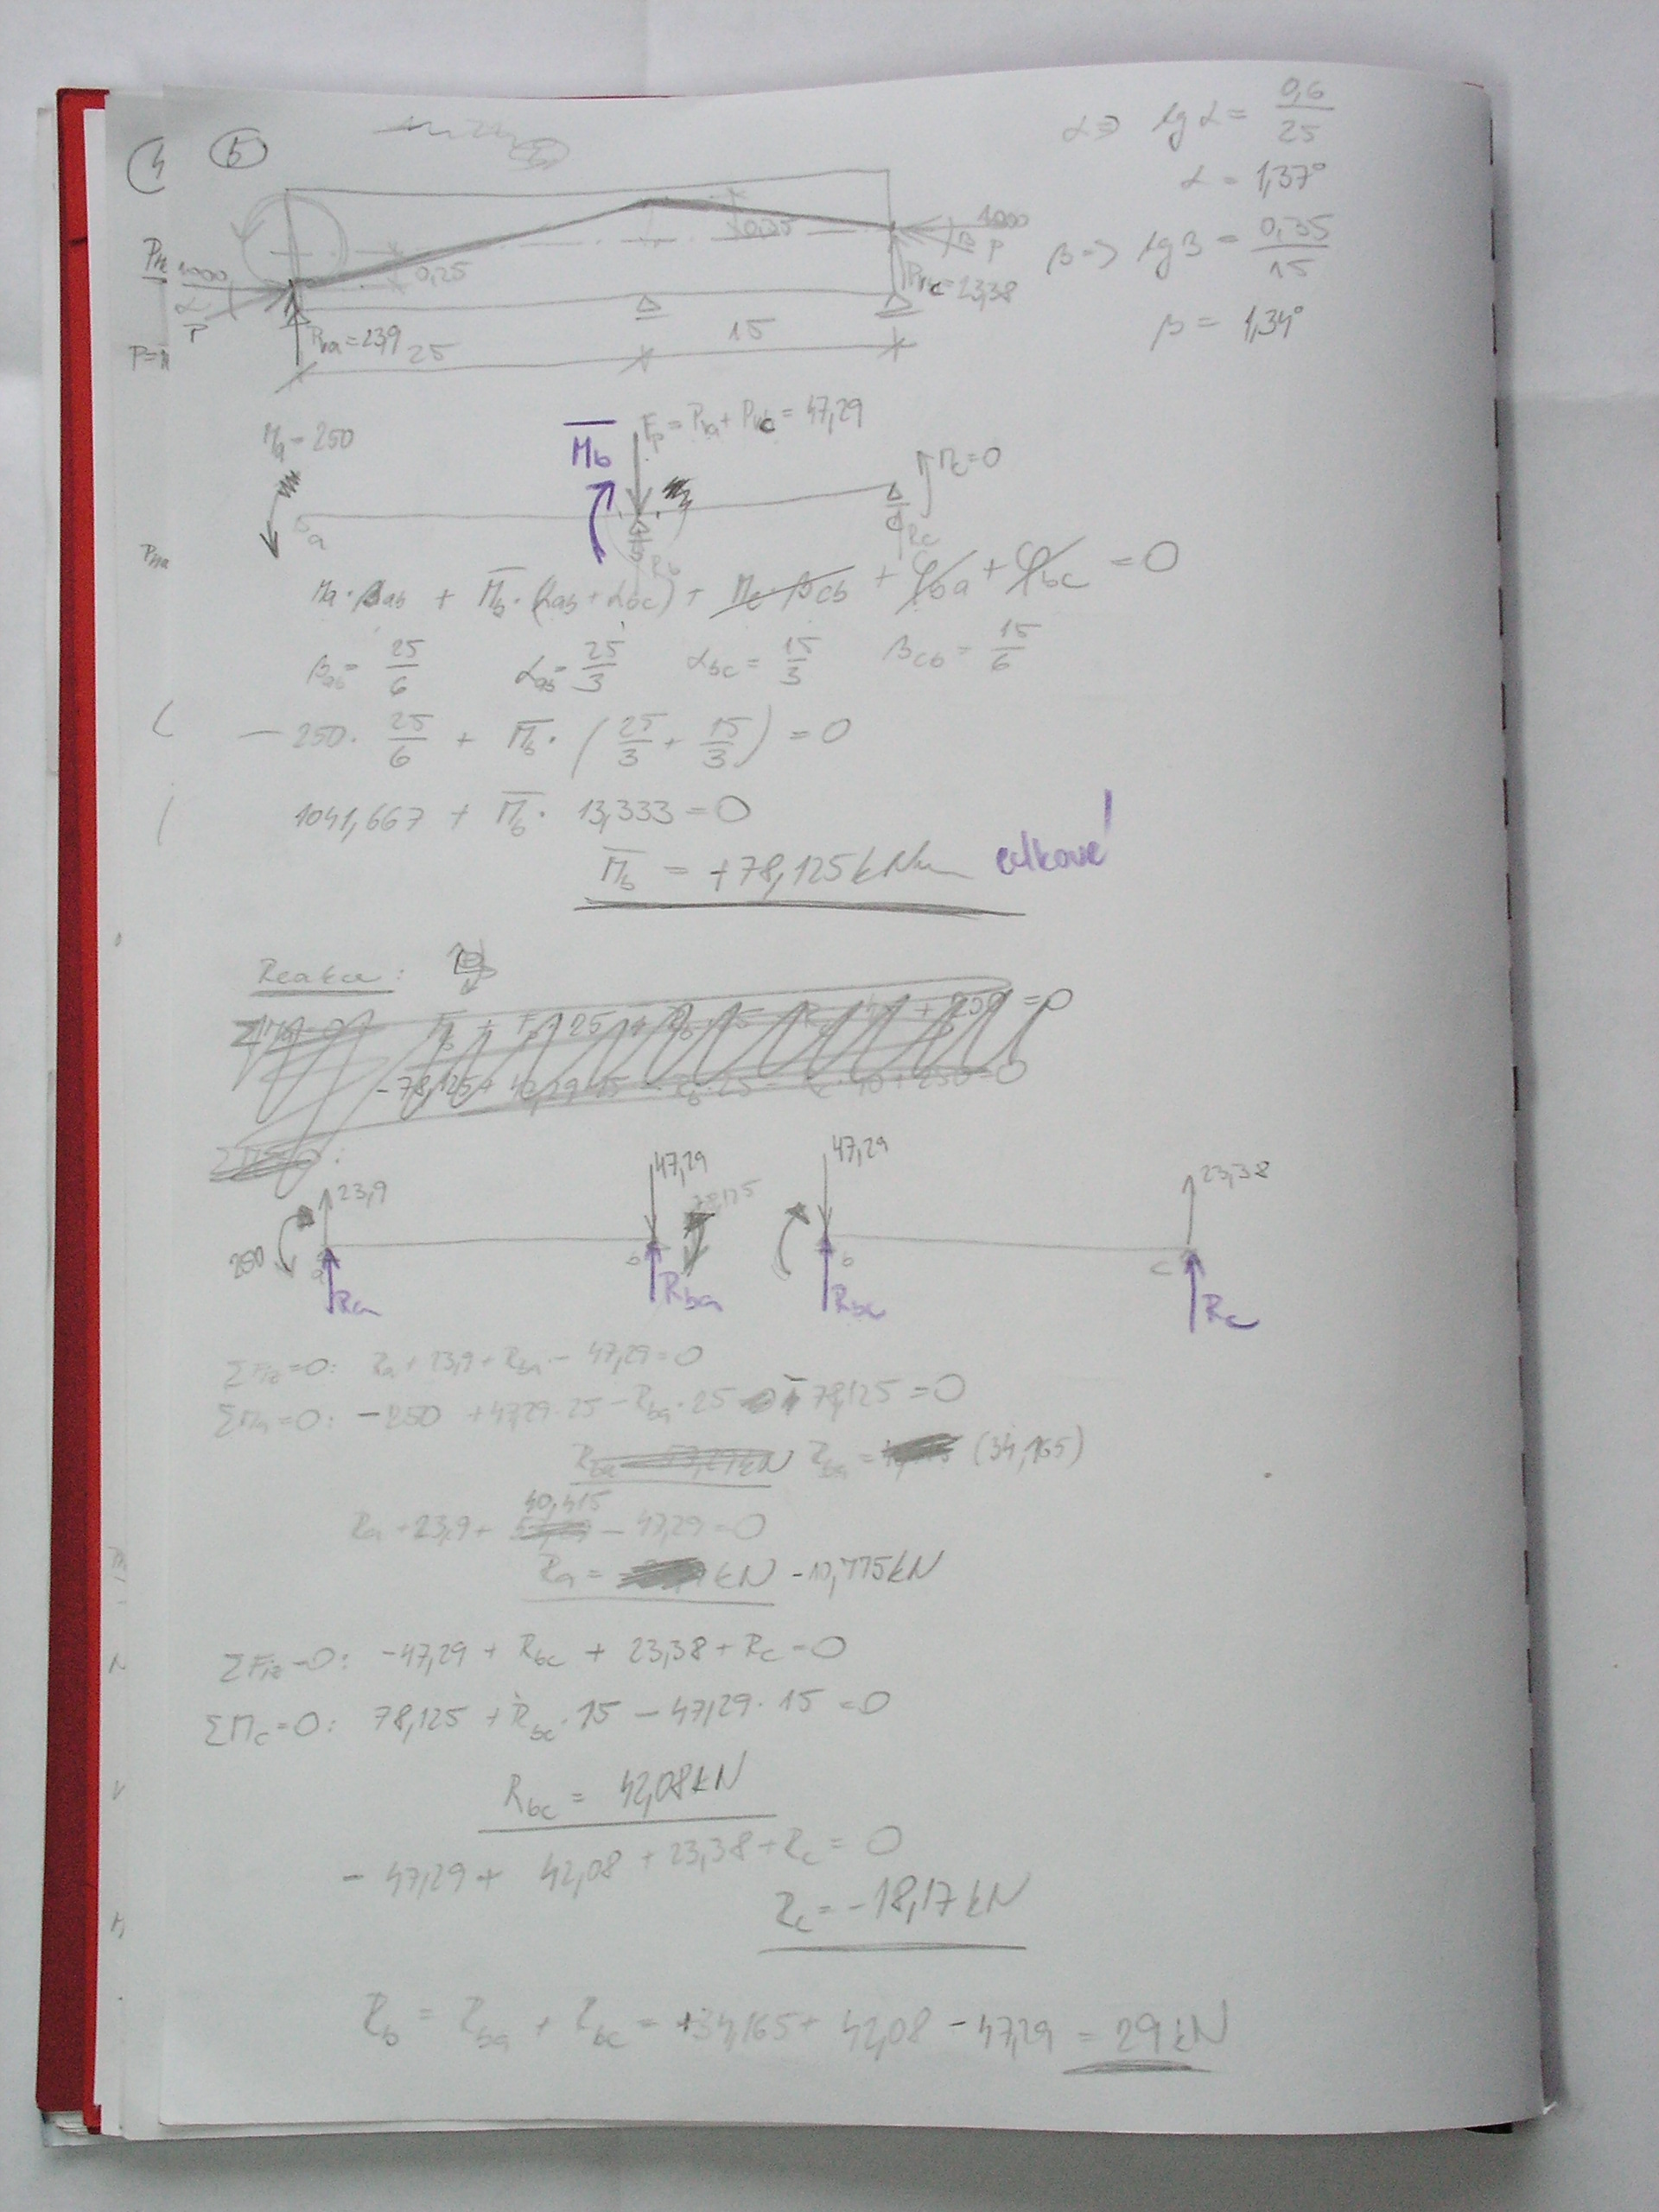 5
α ⇒ tg α = 0,6/25
α = 1,37°
β ⇒ tg β = 0,35/15
β = 1,34°
0,35
1000
β
P
0,25
1000
α
P
Pvc = 23,38
Pva = 23,9
25
15
P=
Ma = 250
Mb
Fp = Pva + Pvc = 47,29
Mc = 0
a
Rb
Rc
Ma · βab + Mb · (αab + αbc) + Mc βcb + φba + φbc = 0
βab = 25/6 αab = 25/3 αbc = 15/3 βcb = 15/6
- 250 · 25/6 + Mb · (25/3 + 15/3) = 0
1041,667 + Mb · 13,333 = 0
Mb = +78,125 kNm celkové!
Reakce:
- 78,125 + 250 = 0
23,9 47,29 47,29 23,38
250 a b 78,125 b c
Ra Rba Rbc Rc
ΣFiz = 0: Ra + 23,9 + Rba - 47,29 = 0
ΣMa = 0: - 250 + 47,29 · 25 - Rba · 25 - 78,125 = 0
Rba = (34,165)
40,415
Ra + 23,9 + - 47,29 = 0
Ra = kN -10,775 kN
ΣFiz = 0: -47,29 + Rbc + 23,38 + Rc = 0
ΣMc = 0: 78,125 + Rbc · 15 - 47,29 · 15 = 0
Rbc = 42,08 kN
- 47,29 + 42,08 + 23,38 + Rc = 0
Rc = -18,17 kN
Rb = Rba + Rbc = +34,165 + 42,08 - 47,29 = 29 kN